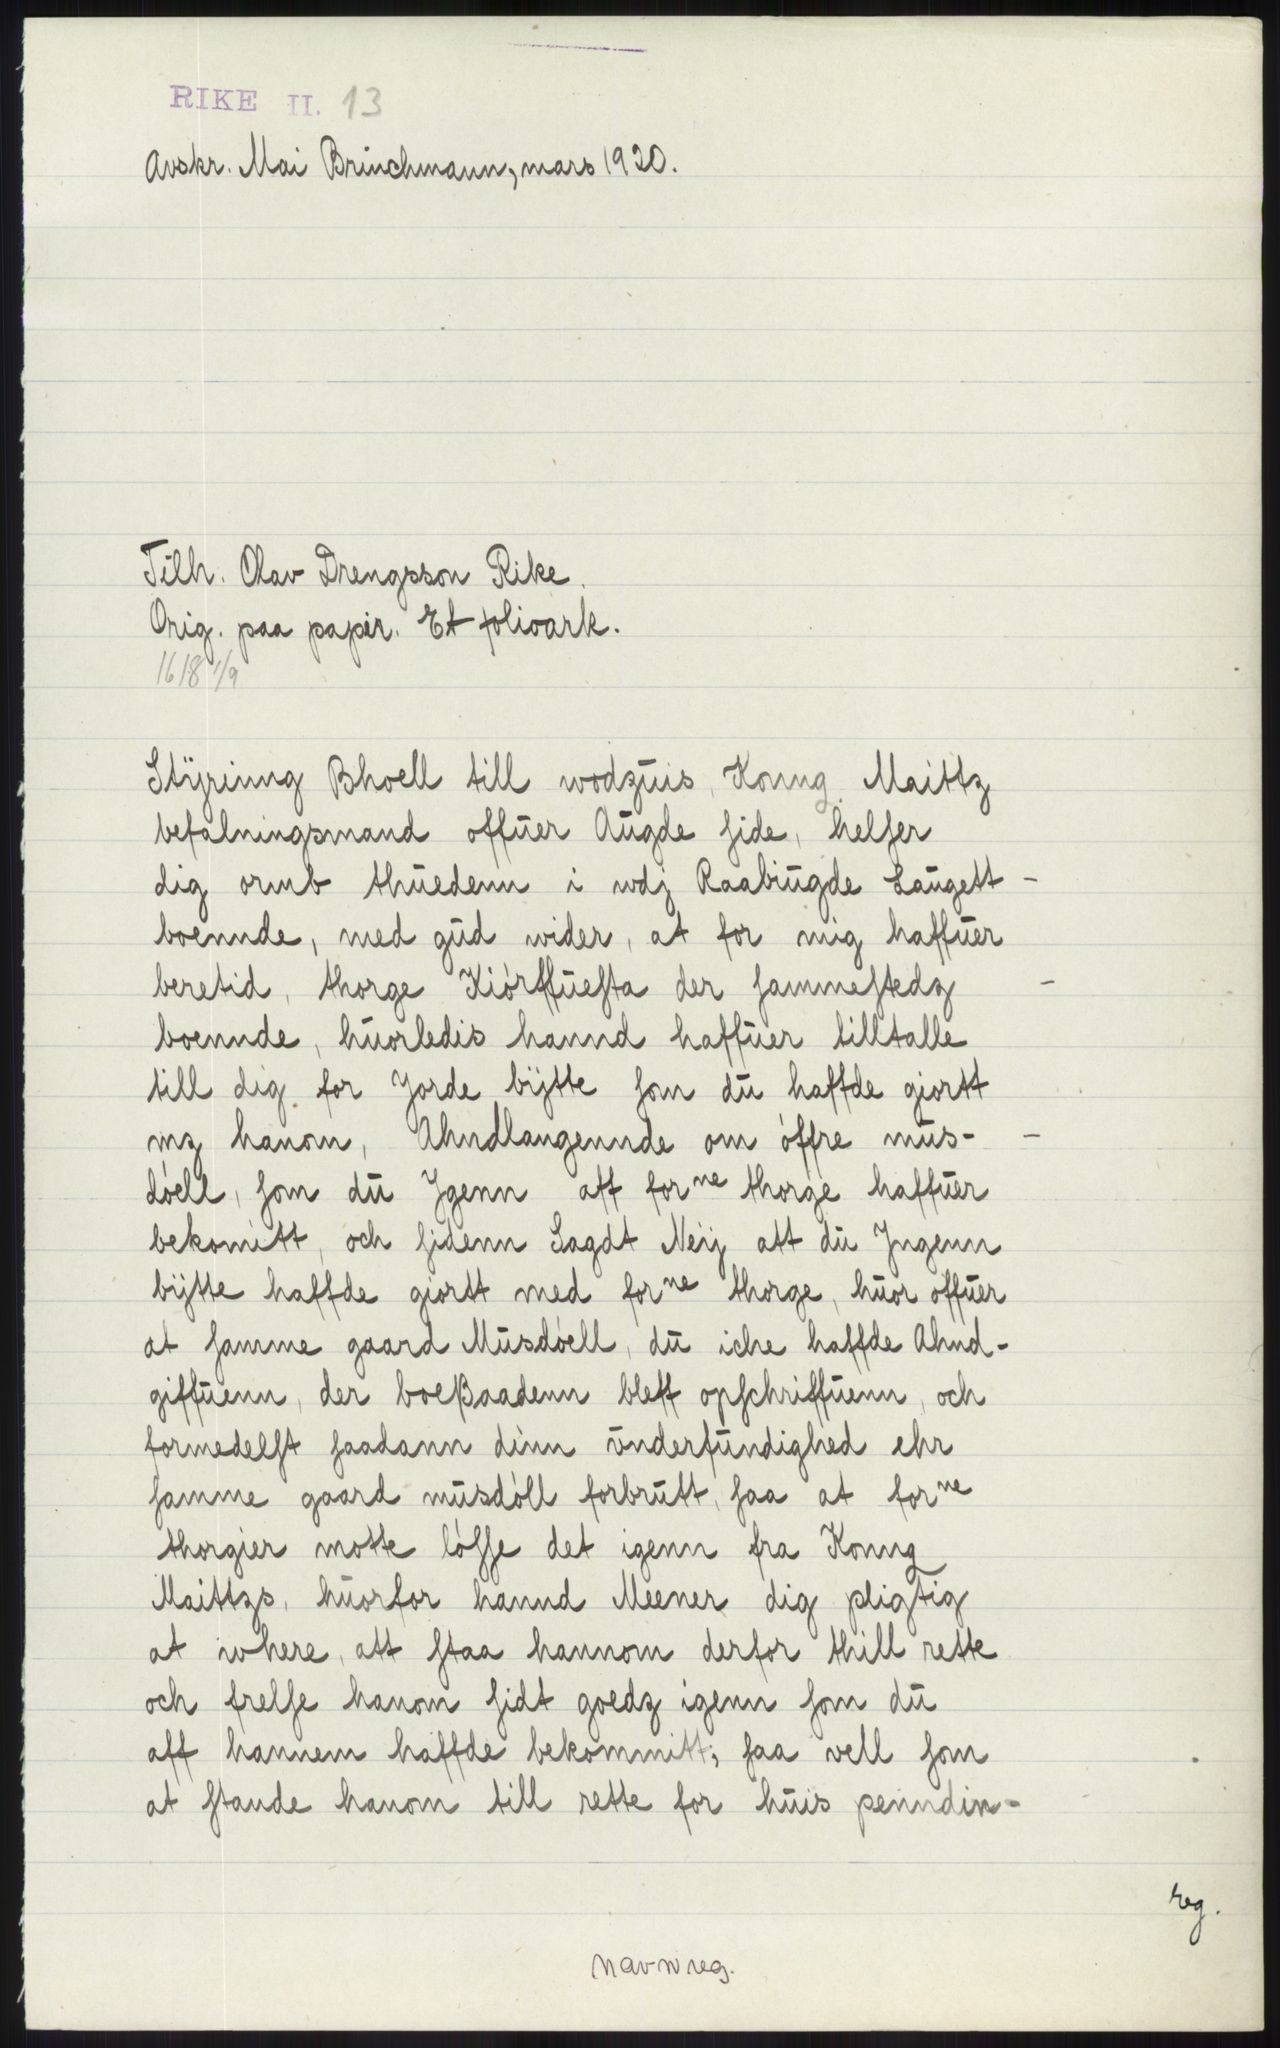 RIKE II. 13
Avskr. Mai Brinchmann, mars 1920.
Tilh. Olav Drengsson Rike.
Orig. paa papir. Et folioark.
1618 1/9
Stÿrinng Bhoell till wodzuis, Konng. Maittz
befalningsmand offuer Augde ſide, helſer
dig ormb thuedenn i wdj Raabiugde Laugett -
boennde, med gud wider, at for mig haffuer
beretid, thorge Kiórffueſta der ſammeſtedz -
boennde, huorledis hannd haffuer tilltalle
till dig for Jorde bÿtte ſom du haffde giortt
mz hanom, Ahndlangennde om óffre mus- -
dóell, ſom du Jgenn aff forne thorge haffuer
bekomitt, och ſidenn Sagdt Neij att du Jngenn
bÿtte haffde giortt med forne thorge, huor offuer
at ſamme gaard Musdóell, du iche haffde Ahnd-
giffuenn, der boeßaadenn bleff opſchriffuenn, och
formedelſt ſaadann dinn underfundighed ehr
ſamme gaard musdóll forbrutt, ſaa at forne
thorgier motte lóſſe det igenn fra Konng
Maittzs, huorfor hannd Meener dig pligtig
at where, att ſtaa hannom derfor thill rette
och frelſe hanom ſidt goedz igenn ſom du
aff hannem haffde bekommitt; ſaa vell ſom
at ſtande hanom till rette for huis penndin-
reg.
navnreg.